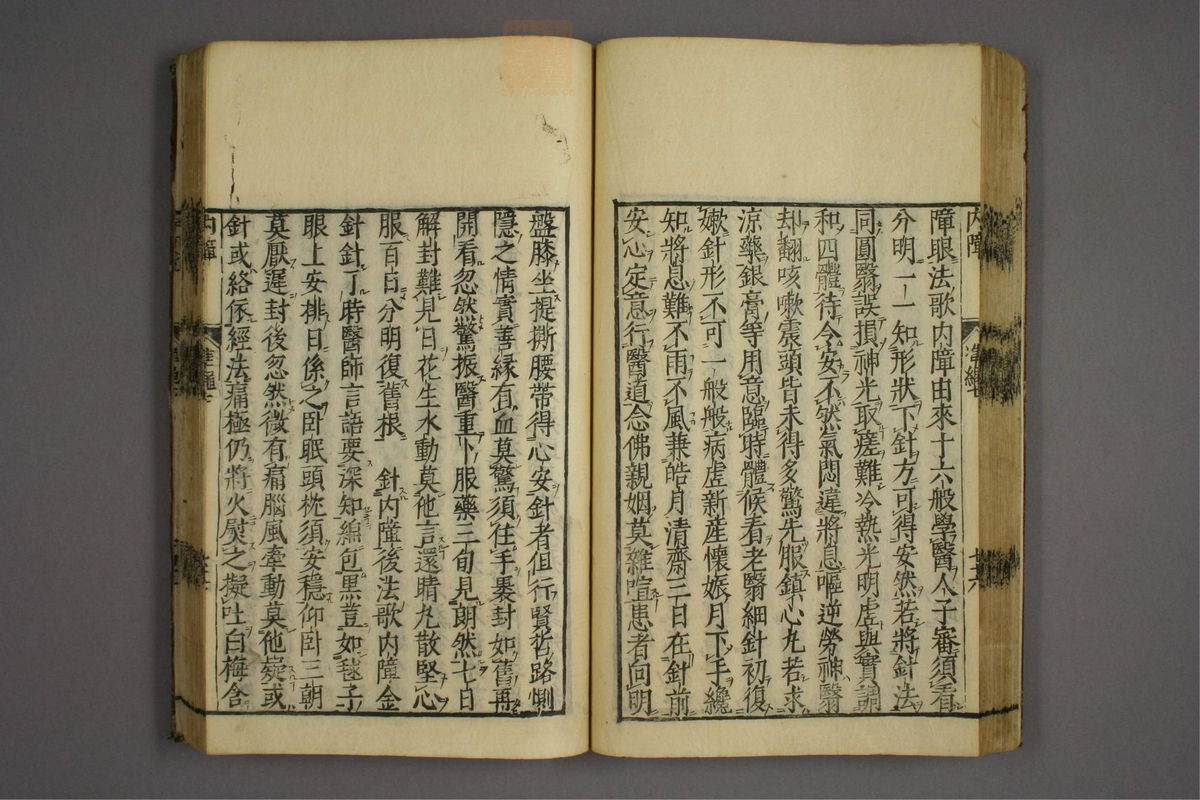 障眼法歌内障由來十六般學醫人子審須看
分明一一知形狀下針方可得安然若將針法
同圓翳誤損神光取瘥難冷熱光明虛與實調
和四體待令安不然氣悶違將息嘔逆勞神翳
却翻咳嗽震頭皆未得多驚先服鎮心丸若求
涼藥銀膏等用意臨時體候看老翳細針初復
嫩針形不可一般般病虛新產懷娠月下手纔
知將息難不雨不風兼皓月清齋三日在針前
安心定意行醫道念佛親姻莫雜喧患者向明
盤膝坐提撕腰帶得心安針者但行賢哲路惻
隱之情實善緣有血莫驚須住手裹封如舊再
開看忽然驚振醫重卜服藥三旬見朗然七日
解封難見日花生水動莫他言還睛丸散堅心
服百日分明復舊根 針内障後法歌内障金
針針了時醫師言語要深知綿包黑荳如毬子
眼上安排日係之臥眠頭枕須安穩仰臥三朝
莫厭遲封後忽然微有痛腦風牽動莫他疑或
針或絡依經法痛極仍將火熨之擬吐白梅含
内障